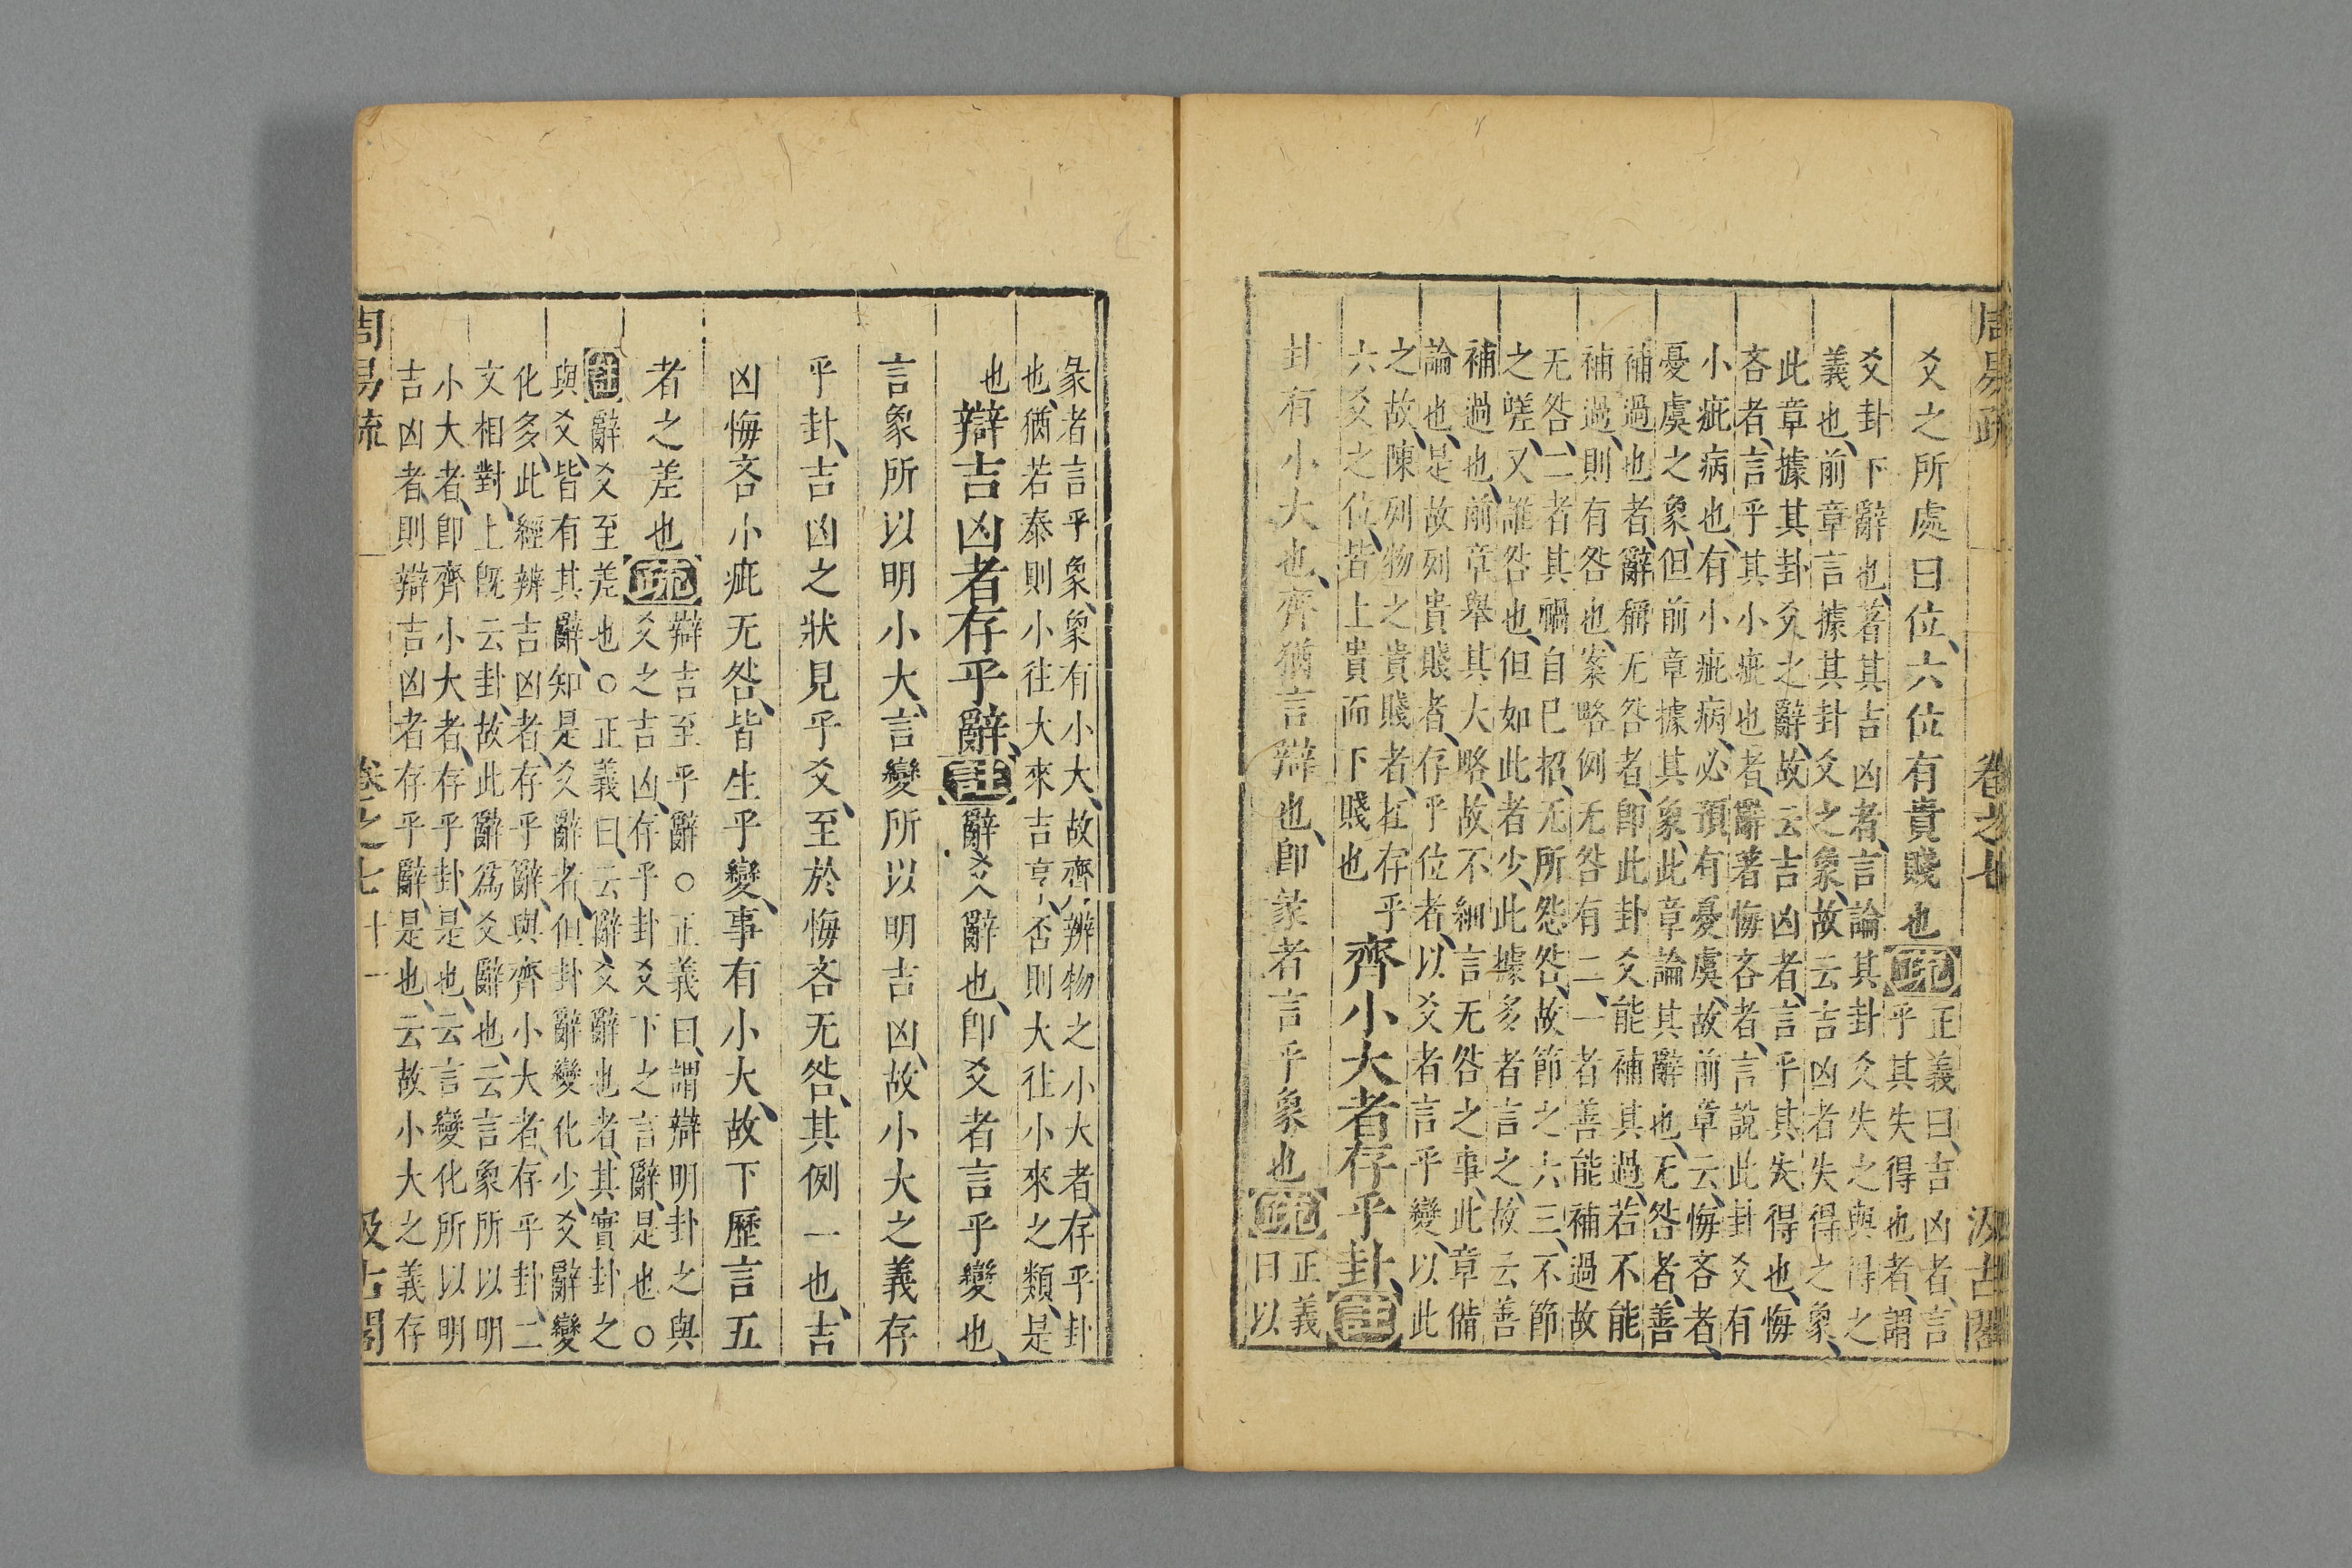 周易疏 卷之七 汲古閣
爻之所處曰位、六位有貴賤也疏
正義曰、吉凶者、言
乎其失得也者、謂
爻卦下辭也、著其吉凶者、言論其卦爻失之與得之
義也、前章言據其卦爻之象、故云吉凶者失得之象、
此章據其卦爻之辭、故云吉凶者、言乎其失得也、悔
吝者、言乎其小疵也者、辭著悔吝者、言說此卦爻有
小疵病也、有小疵病、必預有憂虞、故前章云、悔吝者、
憂虞之象、但前章據其象、此章論其辭也、无咎者、善
補過也者、辭稱无咎者、即此卦爻能補其過、若不能
補過、則有咎也、案略例无咎有二、一者善能補過故
无咎、二者其禍自已招、无所怨咎、故節之六三、不節
之嗟、又誰咎也、但如此者少、此據多者言之、故云善
補過也、前章舉其大略、故不細言无咎之事、此章備
論也、是故列貴賤者、存乎位者、以爻者言乎變、以此
之故、陳列物之貴賤者、在存乎
六爻之位、皆上貴而下賤也
齊小大者存乎卦、註
卦有小大也、齊猶言辯也、即彖者言乎象也疏
正義
曰以
彖者言乎象、象有小大、故齊辨物之小大者、存乎卦
也、猶若泰則小往大來吉亨、否則大往小來之類、是
也
辯吉凶者存乎辭、註辭爻辭也、即爻者言乎變也、
言象所以明小大、言變所以明吉凶、故小大之義存
乎卦、吉凶之狀見乎爻、至於悔吝无咎、其例一也、吉
凶悔吝小疵无咎、皆生乎變、事有小大、故下歷言五
者之差也疏
辯吉至乎辭○正義曰、謂辯明卦之與
爻之吉凶、存乎卦爻下之言辭、是也○
註辭爻至差也○正義曰、云辭、爻辭也者、其實卦之
與爻、皆有其辭、知是爻辭者、但卦辭變化少、爻辭變
化多、此經辨吉凶者、存乎辭、與齊小大者、存乎卦、二
文相對、上旣云卦、故此辭爲爻辭也、云言象所以明
小大者、即齊小大者、存乎卦、是也、云言變化所以明
吉凶者、則辯吉凶者存乎辭、是也、云故小大之義存
周易疏 卷之七 十一 汲古閣